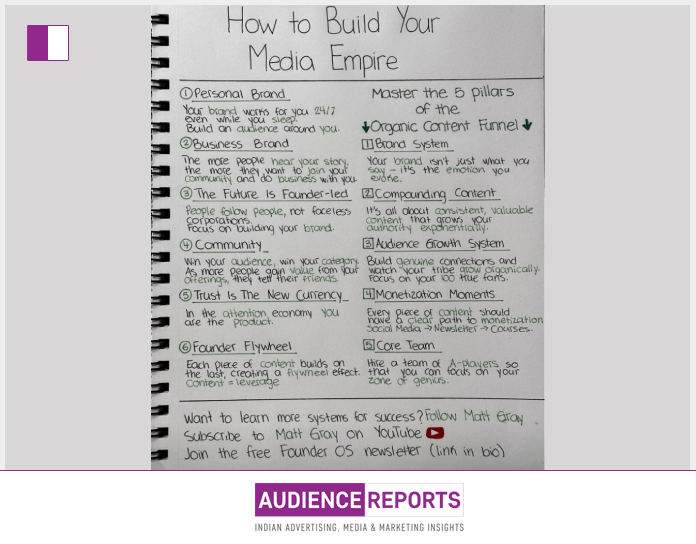 How to Build Your
Media Empire
① Personal Brand
Your brand works for you 24/7
even while you sleep.
Build an audience around you.
② Business Brand
The more people hear your story,
the more they want to join your
community and do business with you.
③ The Future Is Founder-led
People follow people, not faceless
corporations.
Focus on building your brand.
④ Community
Win your audience, win your category.
As more people gain value from your
offerings, they tell their friends.
⑤ Trust Is The New Currency
In the attention economy you
are the product.
⑥ Founder Flywheel
Each piece of content builds on
the last, creating a flywheel effect.
Content = leverage
Master the 5 pillars
of the
↓Organic Content Funnel↓
1 Brand System
Your brand isn't just what you
say - it's the emotion you
evoke.
2 Compounding Content
It's all about consistent, valuable
content that grows your
authority exponentially.
3 Audience Growth System
Build genuine connections and
watch your tribe grow organically.
Focus on your 100 true fans.
4 Monetization Moments
Every piece of content should
have a clear path to monetization
Social Media → Newsletter → Courses.
5 Core Team
Hire a team of A-players so
that you can focus on your
zone of genius.
Want to learn more systems for success? Follow Matt Gray.
Subscribe to Matt Gray on YouTube
Join the free Founder OS newsletter (link in bio)
AUDIENCE REPORTS
INDIAN ADVERTISING, MEDIA & MARKETING INSIGHTS